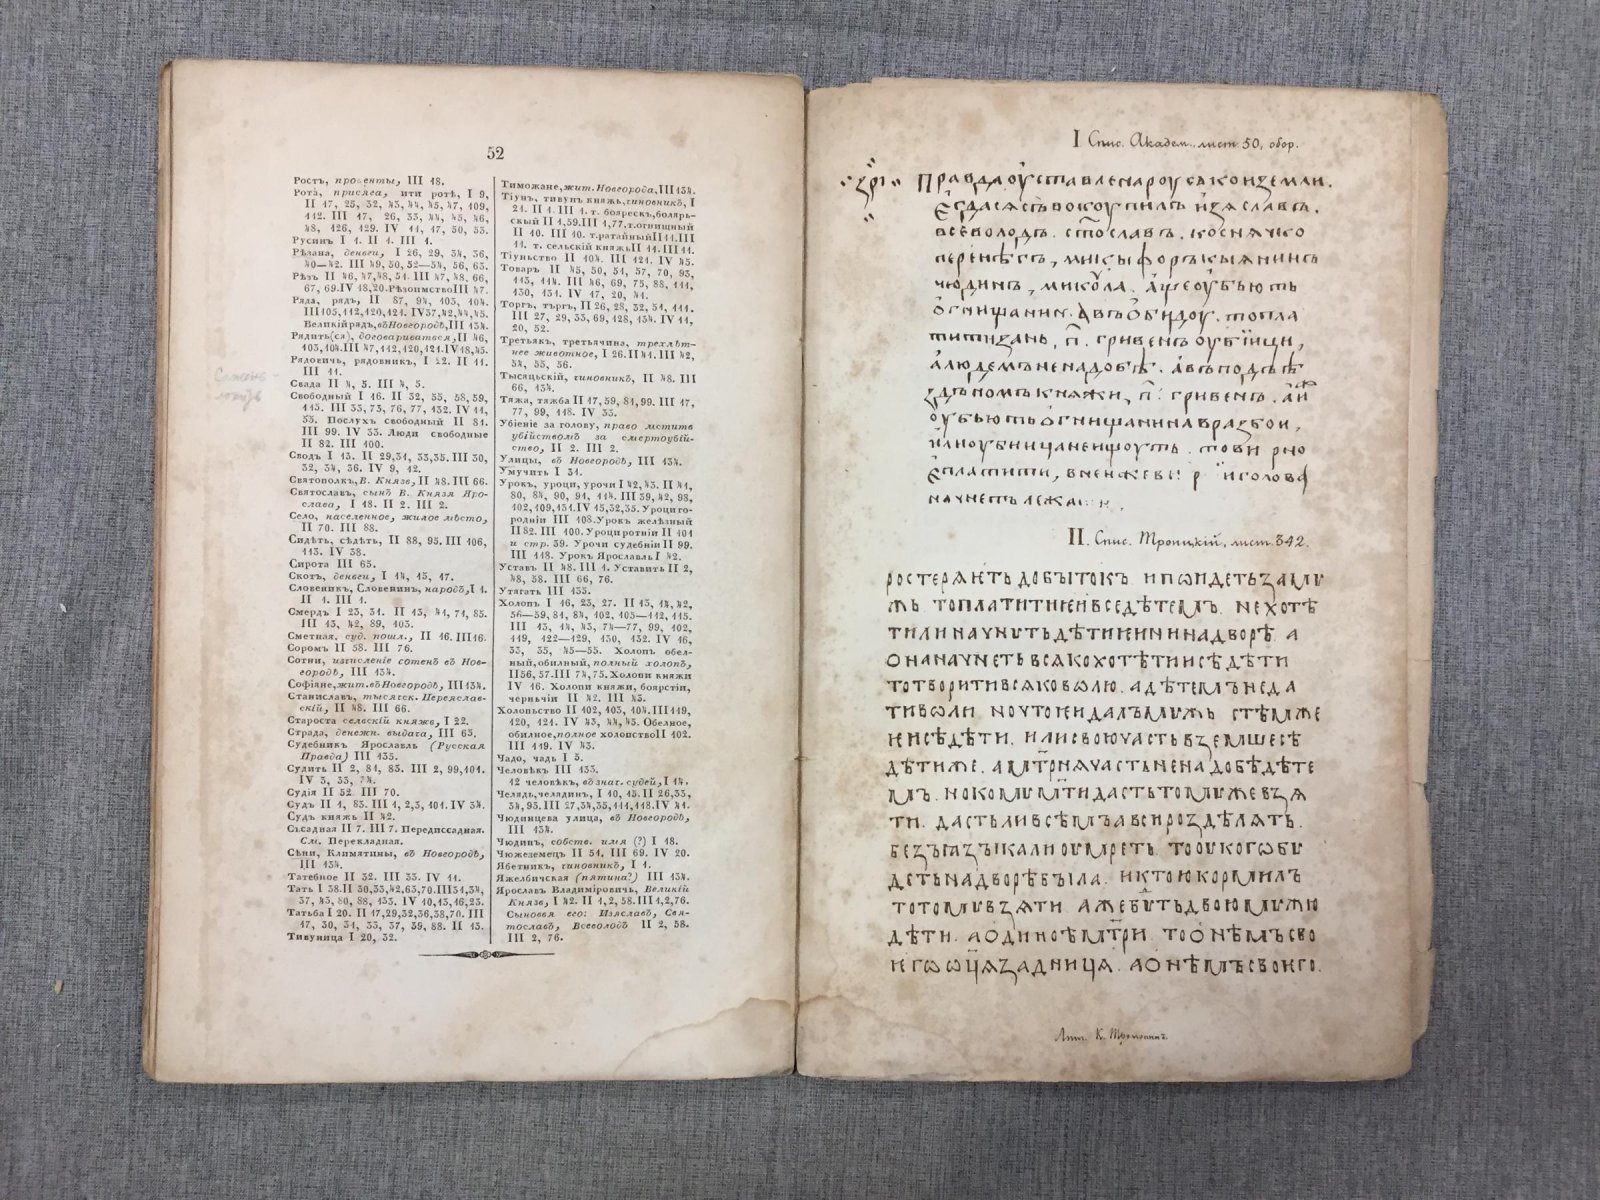 52
Ростъ, проценты, III 18.
Рота, присяга, ити ротѣ, I 9,
II 17, 25, 32, 43, 44, 45, 47, 109,
112. III 17, 26, 33, 44, 45, 46,
48, 126, 129. IV 11, 17, 50, 53.
Русинъ I 1. II 1. III 1.
Рѣзана, деньги, I 26, 29, 34, 36,
40—42. III 49, 50, 52—54, 56, 63.
Рѣзъ II 46, 47, 48, 51. III 47, 48, 66,
67, 69. IV 18, 20. Рѣзоимство III 47.
Ряда, рядъ, II 87, 94, 103, 104.
III 105, 112, 120, 121. IV 37, 42, 44, 45.
Великій рядъ, въ Новгородѣ, III 134.
Рядить(ся), договариваться, II 46,
103, 104. III 47, 112, 120, 121. IV 18, 45.
Рядовичь, рядовникъ, I 22. II 11.
III 11.
Свада II 4, 5. III 4, 5.
Свободный I 16. II 32, 55, 58, 59,
115. III 33, 73, 76, 77, 132. IV 11,
53. Послухъ свободный II 81.
III 99. IV 33. Люди свободные
II 82. III 100.
Сводъ I 13. II 29, 31, 33, 35. III 30,
32, 34, 36. IV 9, 12.
Святополкъ, В. Князь, II 48. III 66.
Святославъ, сынъ В. Князя Яро-
слава, I 18. II 2. III 2.
Село, населенное, жилое мѣсто,
II 70. III 88.
Сидѣть, сѣдѣть, II 88, 95. III 106,
113. IV 38.
Сирота III 65.
Скотъ, деньги, I 14, 15, 17.
Словеникъ, Словенинъ, народъ, I 1.
II 1. III 1.
Смердъ I 23, 31. II 13, 41, 71, 85.
III 13, 42, 89, 103.
Сметная, суд. пошл., II 16. III 16.
Сором II 58. III 76.
Сотни, изчисленіе сотенъ въ Нов-
городѣ, III 134.
Софіяне, жит. въ Новгородѣ, III 134.
Станиславъ, тысяцск. Переяслав-
скій, II 48. III 66.
Староста сельскій княжь, I 22.
Страда, денежн. выдача, III 65.
Судебникъ Ярославль (Русская
Правда) III 135.
Судить II 2, 81, 83. III 2, 99, 101.
IV 3, 33, 34.
Судія II 52. III 70.
Судъ II 1, 83. III 1, 2, 3, 101. IV 34.
Судъ княжь II 42.
Съсадная II 7. III 7. Передиссадная.
См. Перекладная.
Сѣни, Климятины, въ Новгородѣ,
III 134.
Татебное II 32. III 33. IV 11.
Тать I 38. II 30, 33, 42, 63, 70. III 31, 34,
37, 43, 80, 88, 133. IV 10, 13, 16, 23.
Татьба I 20. II 17, 29, 32, 36, 38, 70. III
17, 30, 31, 33, 37, 39, 88. II 13.
Тивуница I 20, 32.
Тиможане, жит. Новгорода, III 134.
Тіунъ, тивунъ княжь, чиновникъ, I
21. II 1. III 1. т. бояреск, боляр-
скый II 1, 59. III 1, 77. т. огнищный
II 10. III 10. т. ратайный II 11. III
11. т. сельскій княжь II 11. III 11.
Тіуньство II 104. III 121. IV 45.
Товаръ II 45, 50, 51, 57, 70, 93,
113, 114. III 46, 69, 75, 88, 111,
130, 131. IV 17, 20, 41.
Торгъ, търгъ, II 26, 28, 32, 51, 111.
III 27, 29, 33, 69, 128, 134. IV 11,
20, 52.
Третьякъ, третьячина, трехлѣт-
нее животное, I 26. II 41. III 42,
54, 55, 56.
Тысяцьскій, чиновникъ, II 48. III
66, 134.
Тяжа, тяжба II 17, 59, 81, 99. III 17,
77, 99, 118. IV 33.
Убіеніе за голову, право мстить
убійствомъ за смертоубій-
ство, II 2. III 2.
Улицы, въ Новгородѣ, III 134.
Умучить I 31.
Урокъ, уроци, урочи I 42, 43. II 41,
80, 84, 90, 91, 114. III 39, 42, 98,
102, 109, 131. IV 15, 32, 35. Уроци го-
родніи III 108. Урокъ желѣзный
II 82. III 100. Уроци ротніи II 101
и стр. 39. Урочи судебніи II 99.
III 118. Урокъ Ярославль I 42.
Уставъ II 48. III 1. Уставить II 2,
48, 58. III 66, 76.
Утягать III 133.
Холопъ I 16, 23, 27. II 13, 14, 42,
56—59, 81, 84, 102, 105—112, 115.
III 13, 14, 43, 74—77, 99, 102,
119, 122—129, 130, 132. IV 16,
33, 35, 45—55. Холопъ обел-
ный, обилный, полный холопъ,
II 56, 57. III 74, 75. Холопи княжи
IV 16. Холопи княжи, боярстіи,
черньчіи II 42. III 43.
Холопьство II 102, 103, 104. III 119,
120, 121. IV 43, 44, 45. Обелное,
обилное, полное холопство II 102.
III 119. IV 43.
Чадо, чадь I 3.
Человѣкъ III 133.
12 человѣкъ, въ знач. судей, I 14.
Челядь, челядинъ, I 10, 15. II 26, 33,
34, 93. III 27, 34, 35, 111, 118. IV 41.
Чюдинцева улица, въ Новгородѣ,
III 134.
Чюдинъ, собств. имя (?) I 18.
Чюжеземецъ II 51. III 69. IV 20.
Ябетникъ, чиновникъ, I 1.
Яжелбичская (пятина?) III 134.
Ярославъ Владиміровичь, Великій
Князь, I 42. II 1, 2, 58. III 1, 2, 76.
Сыновья его: Изяславъ, Свя-
тославъ, Всеволодъ II 2, 58.
III 2, 76.
I Спис. Академ. лист 50, обор.
зрі Правда оуставлена роуськои земли.
Егдася съвокоупилъ Изяславъ.
всеволодъ. стославъ. коснячко
перенѣгъ, микыфоръ кыянинъ
чюдинъ, микула. аще оубьють
огнищанин. въ обидоу. то пла
тити зань, п҃. гривенъ оубіици,
а людемъ не надобѣ. а въ подъѣ
здьномъ княжи, п҃. гривенъ. а иж
оубьють огнищанина в разбои,
или оубиица не ищоуть. то вирно
е платити, в неи же вири голова
начнеть лежати.
II. Спис. Троицкій, лист. 342.
ростеряѥть добытокъ. и поидеть за му
жь. то платити ѥи все дѣтемъ. не хотѣ
ти ли начнуть дѣти ѥи ни на дворѣ. а
она начнеть всяко хотѣти и сѣдѣти
то творити всяко волю. а дѣтемъ не да
ти воли. но что ѥи далъ мужь. с тѣмъ же
ѥи сѣдѣти. или свою часть вземше сѣ
дѣти же. а мт҃рня часть не надобѣ дѣте
мъ. но кому мт҃и дасть тому же взя
ти. дасть ли всѣмъ а вси роздѣлять.
безъ языка ли оумреть. то оу кого бу
деть на дворѣ была. и кто ю кормилъ
то тому взяти. аже будуть двою мужю
дѣти. а одиноѣ мт҃ри. то онѣмъ сво
ѥго оц҃я задниця. а онѣмъ своѥго.
Лит. К. Тромонинъ.